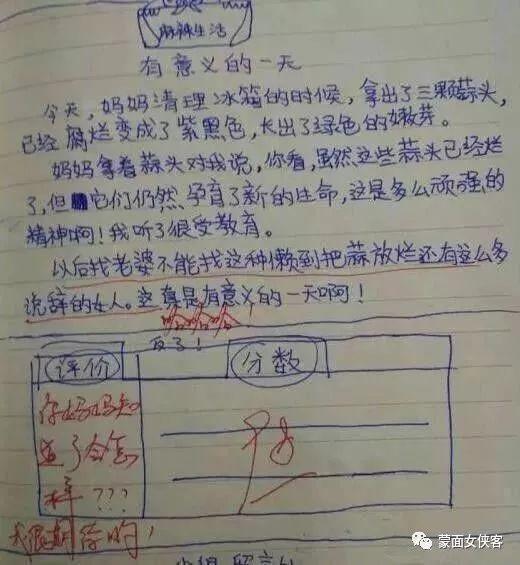 麻辣生活
有意义的一天
今天，妈妈清理冰箱的时候，拿出了三颗蒜头，
已经腐烂变成了紫黑色，长出了绿色的嫩芽。
妈妈拿着蒜头对我说，你看，虽然这些蒜头已经烂
了，但它们仍然孕育了新的生命，这是多么顽强的
精神啊！我听了很受教育。
以后找老婆不能找这种懒到把蒜放烂还有这么多
说辞的女人。这真是有意义的一天啊！
哈哈哈
评价
分数
你妈妈知
道了会怎
样???
我很期待哟！
优
蒙面女侠客